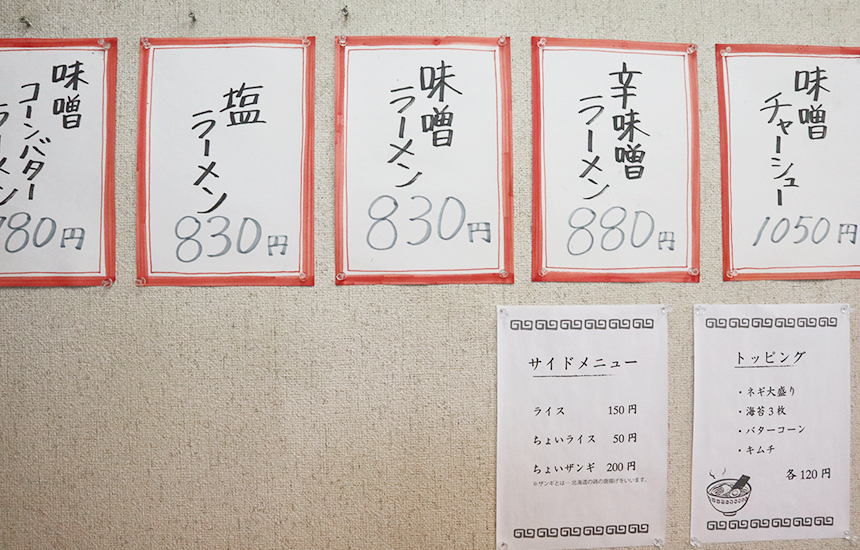 味噌
コーンバター
ラーメン
780円
塩
ラーメン
830円
味噌
ラーメン
830円
辛味噌
ラーメン
880円
味噌
チャーシュー
1050円
サイドメニュー
ライス 150円
ちょいライス 50円
ちょいザンギ 200円
※ザンギとは…北海道の鶏の唐揚げをいいます。
トッピング
・ネギ大盛り
・海苔3枚
・バターコーン
・キムチ
各120円